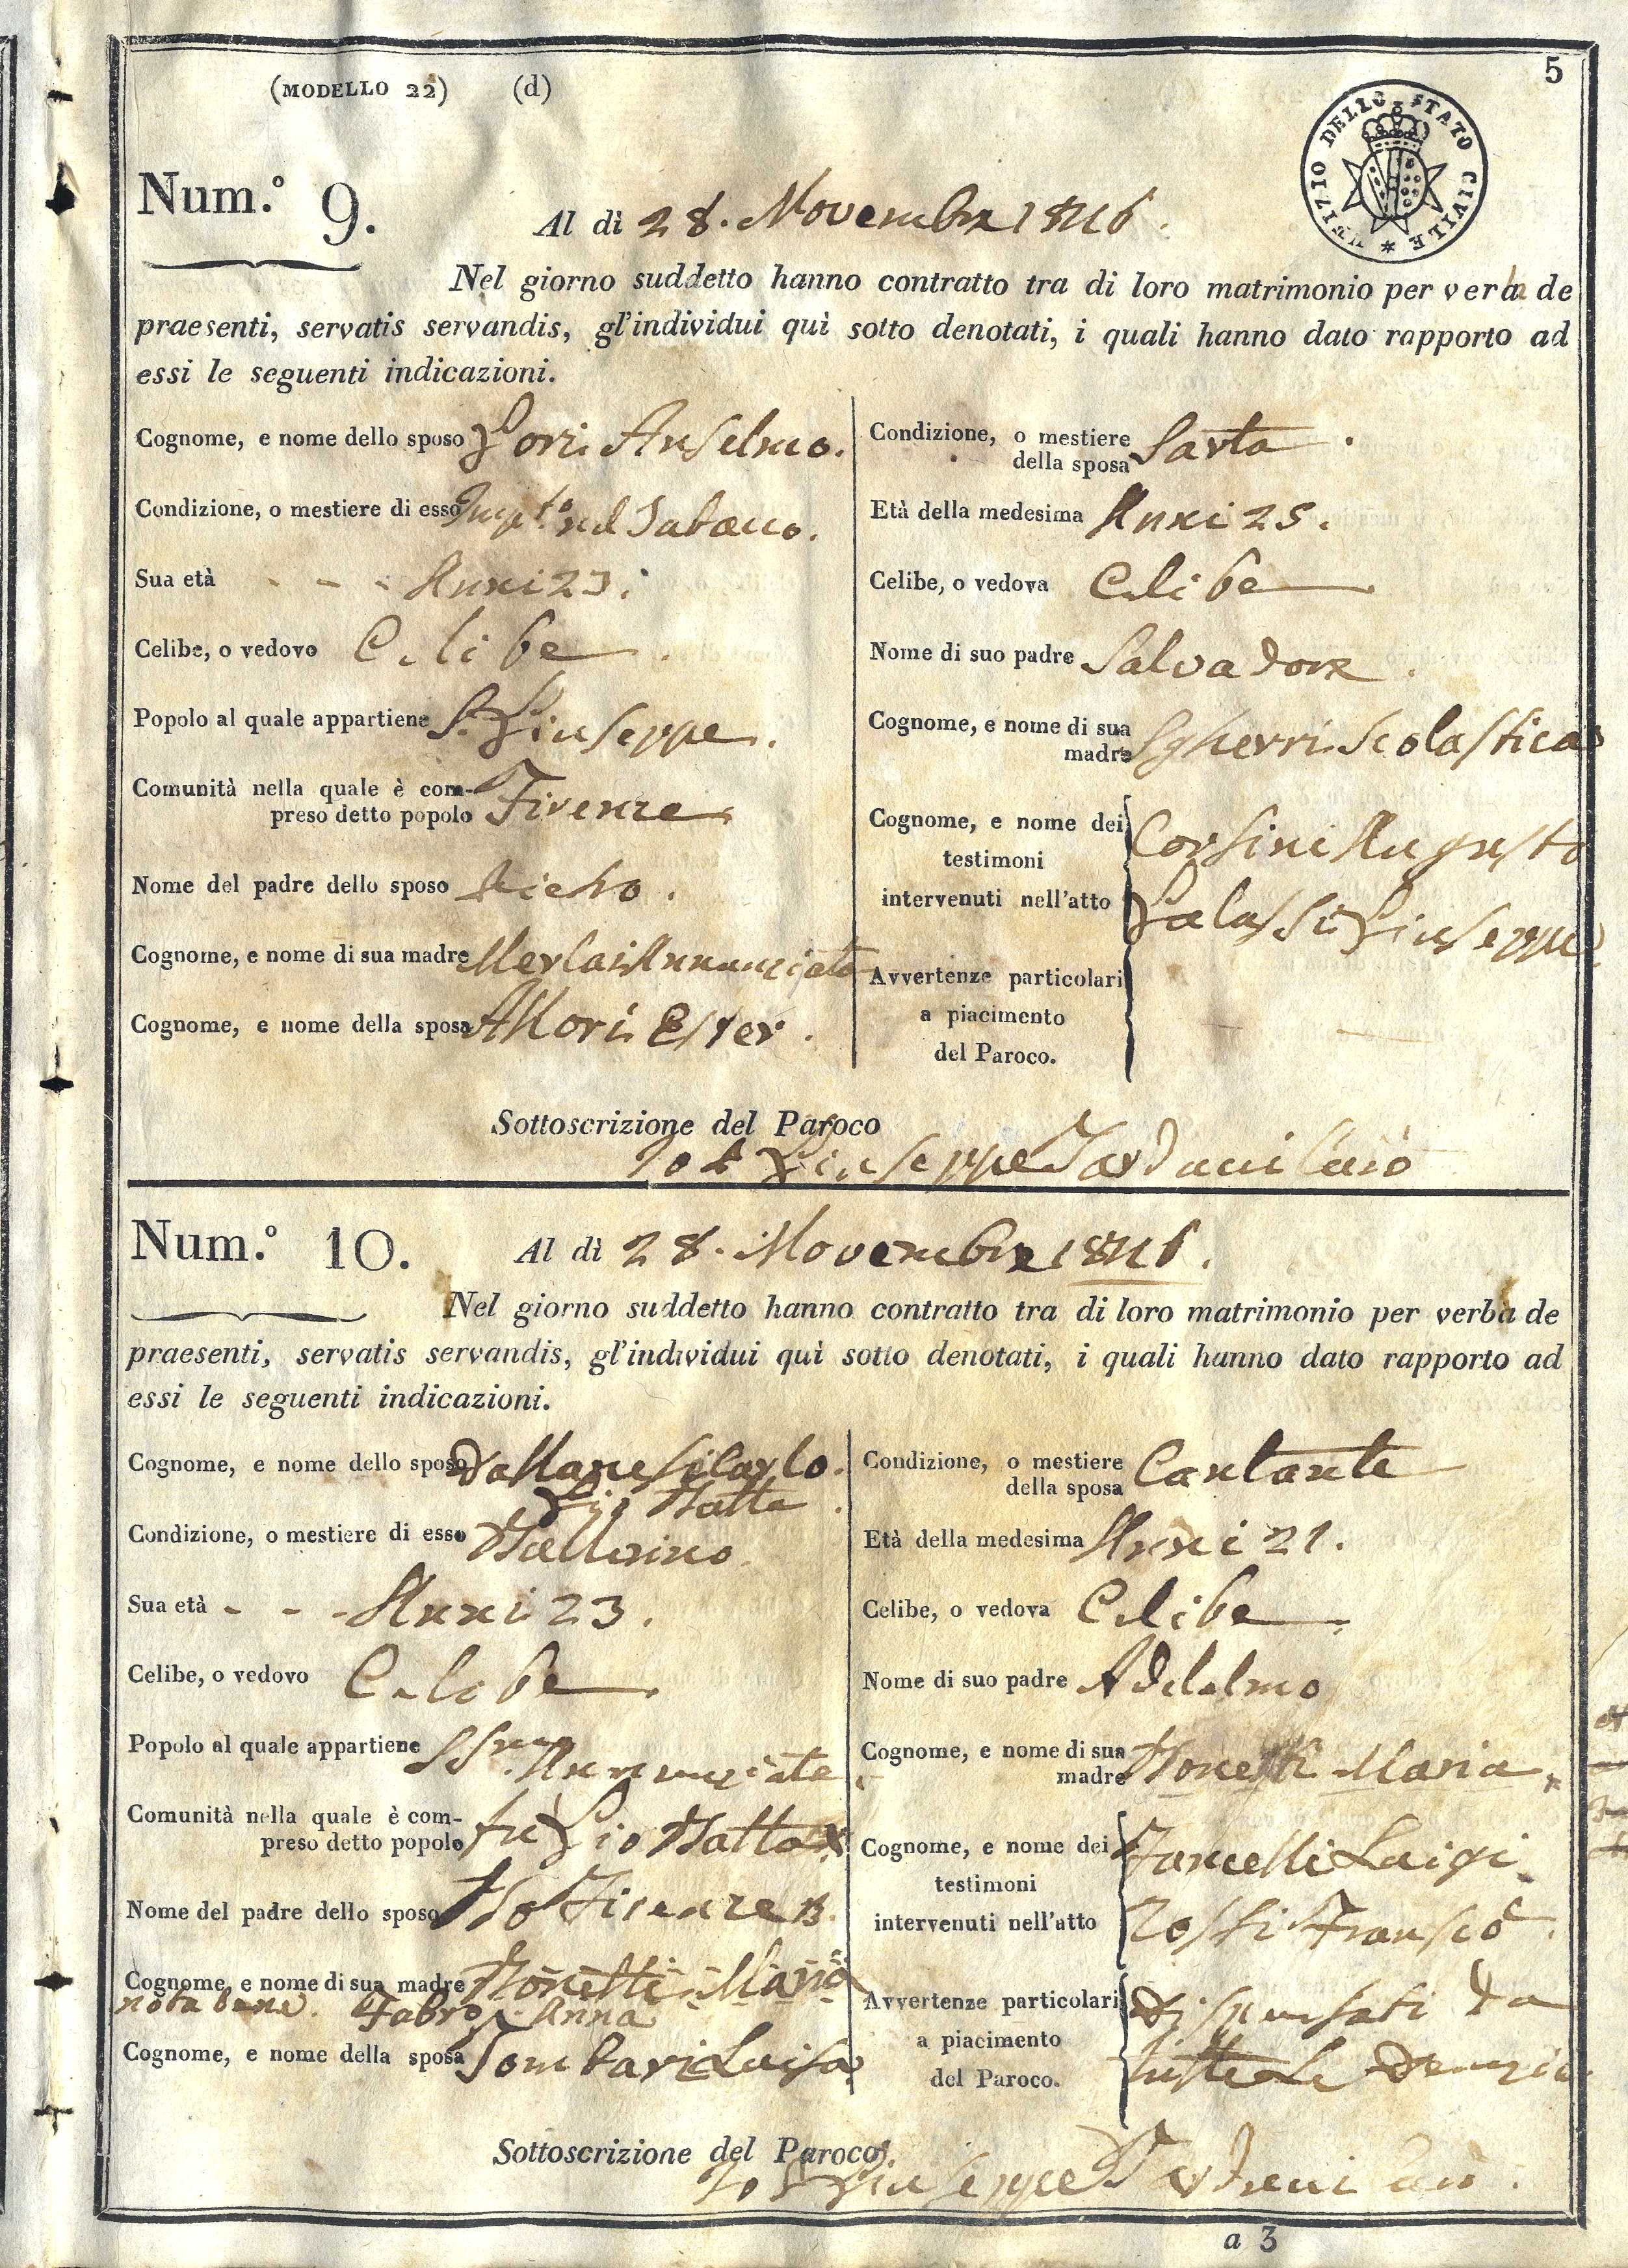 5
(MODELLO 22) (d)
UFIZIO DELLO STATO CIVILE
Num.º 9.
Al dì 28. Novembre 1846.
Nel giorno suddetto hanno contratto tra di loro matrimonio per verba de
praesenti, servatis servandis, gl'individui quì sotto denotati, i quali hanno dato rapporto ad
essi le seguenti indicazioni.
Cognome, e nome dello sposo Gori Anselmo.
Condizione, o mestiere di esso nel Tabacco.
Sua età - - - Anni 23.
Celibe, o vedovo Celibe
Popolo al quale appartiene S. Giuseppe.
Comunità nella quale è com-
preso detto popolo Firenze
Nome del padre dello sposo
Cognome, e nome di sua madre Annunziata
Cognome, e nome della sposa Allori Ester.
Condizione, o mestiere
della sposa Sarta.
Età della medesima Anni 25.
Celibe, o vedova Celibe
Nome di suo padre Salvadore
Cognome, e nome di sua
madre Sgherri Scolastica
Cognome, e nome dei
testimoni
intervenuti nell'atto
Corsini Augusto
Galassi Giuseppe
Avvertenze particolari
a piacimento
del Paroco.
Sottoscrizione del Paroco
Io P. Giuseppe Tarduci
Num.º 10.
Al dì 28. Novembre 1846.
Nel giorno suddetto hanno contratto tra di loro matrimonio per verba de
praesenti, servatis servandis, gl'individui quì sotto denotati, i quali hanno dato rapporto ad
essi le seguenti indicazioni.
Cognome, e nome dello sposo Carlo.
Gio Batta
Condizione, o mestiere di esso Ballerino
Sua età - - - Anni 23.
Celibe, o vedovo Celibe
Popolo al quale appartiene SSma. Annunziata
Comunità nella quale è com-
preso detto popolo Gio Batta
Nome del padre dello sposo Firenze
Cognome, e nome di sua madre Bonetti Maria
nota bene. Fabro Anna
Cognome, e nome della sposa Tombari Luisa
Condizione, o mestiere
della sposa Cantante
Età della medesima Anni 21.
Celibe, o vedova Celibe
Nome di suo padre Adelelmo
Cognome, e nome di sua
madre Bonetti Maria
Cognome, e nome dei
testimoni
intervenuti nell'atto
Fancelli Luigi
Avvertenze particolari
a piacimento
del Paroco.
Dispensati da
tutte Le Denunzie
Sottoscrizione del Paroco
Io P. Giuseppe Tarduci
a 3